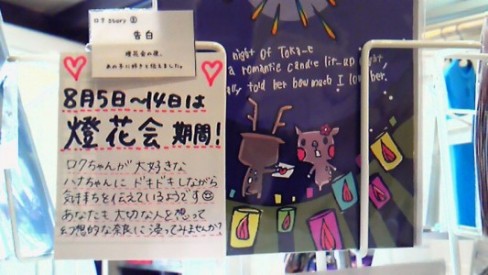 ロク story ②
告白
燈花会の夜、
あの子に好きと伝えました。
8月5日~14日は
燈花会 期間!
ロクちゃんが大好きな
ハナちゃんにドキドキしながら
気持ちを伝えているようです
あなたも大切な人を想って
幻想的な奈良に浸ってみませんか?
night of Toka-e
a romantic candle lit-up night
told her how much I love her.